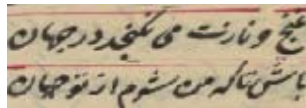 غنج و نازت می نگنجد در جهان
باش تا که من شوم از تو جهان